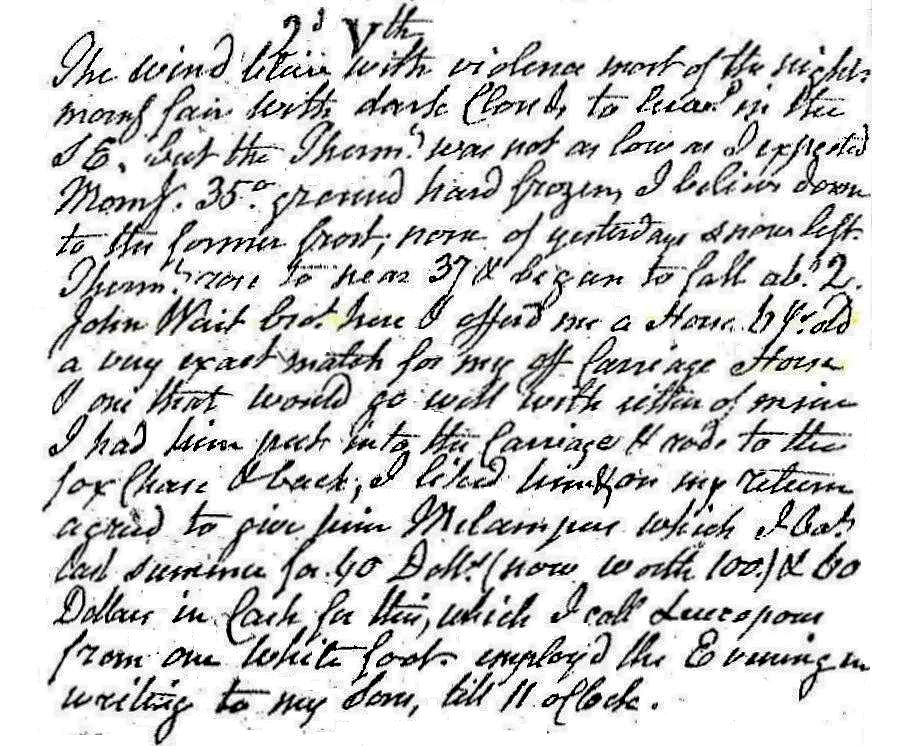 2d Vth
The wind blew with violence most of the night,
morng fair with dark Clouds to in the
S E. but the Thermr was not as low as I expected
Morng. 35° ground hard frozen, I believe down
to the former frost; none of yesterdays snow left.
Thermr rose to near 37 & began to fall abt 2.
John Wait brot here & offerd me a Horse 6 yrs old
a very exact match for my off Carriage Horse
& one that would go well with either of mine
I had him put into the Carriage & rode to the
fox Chase & back, I liked him & on my return
agreed to give him Melampus which I bot
last summer for 40 Dollrs (now worth 100.) & 60
Dollars in Cash for this, which I call Leucopous
from one white foot. employd the Evening in
writing to my Sons, till 11 oClock.